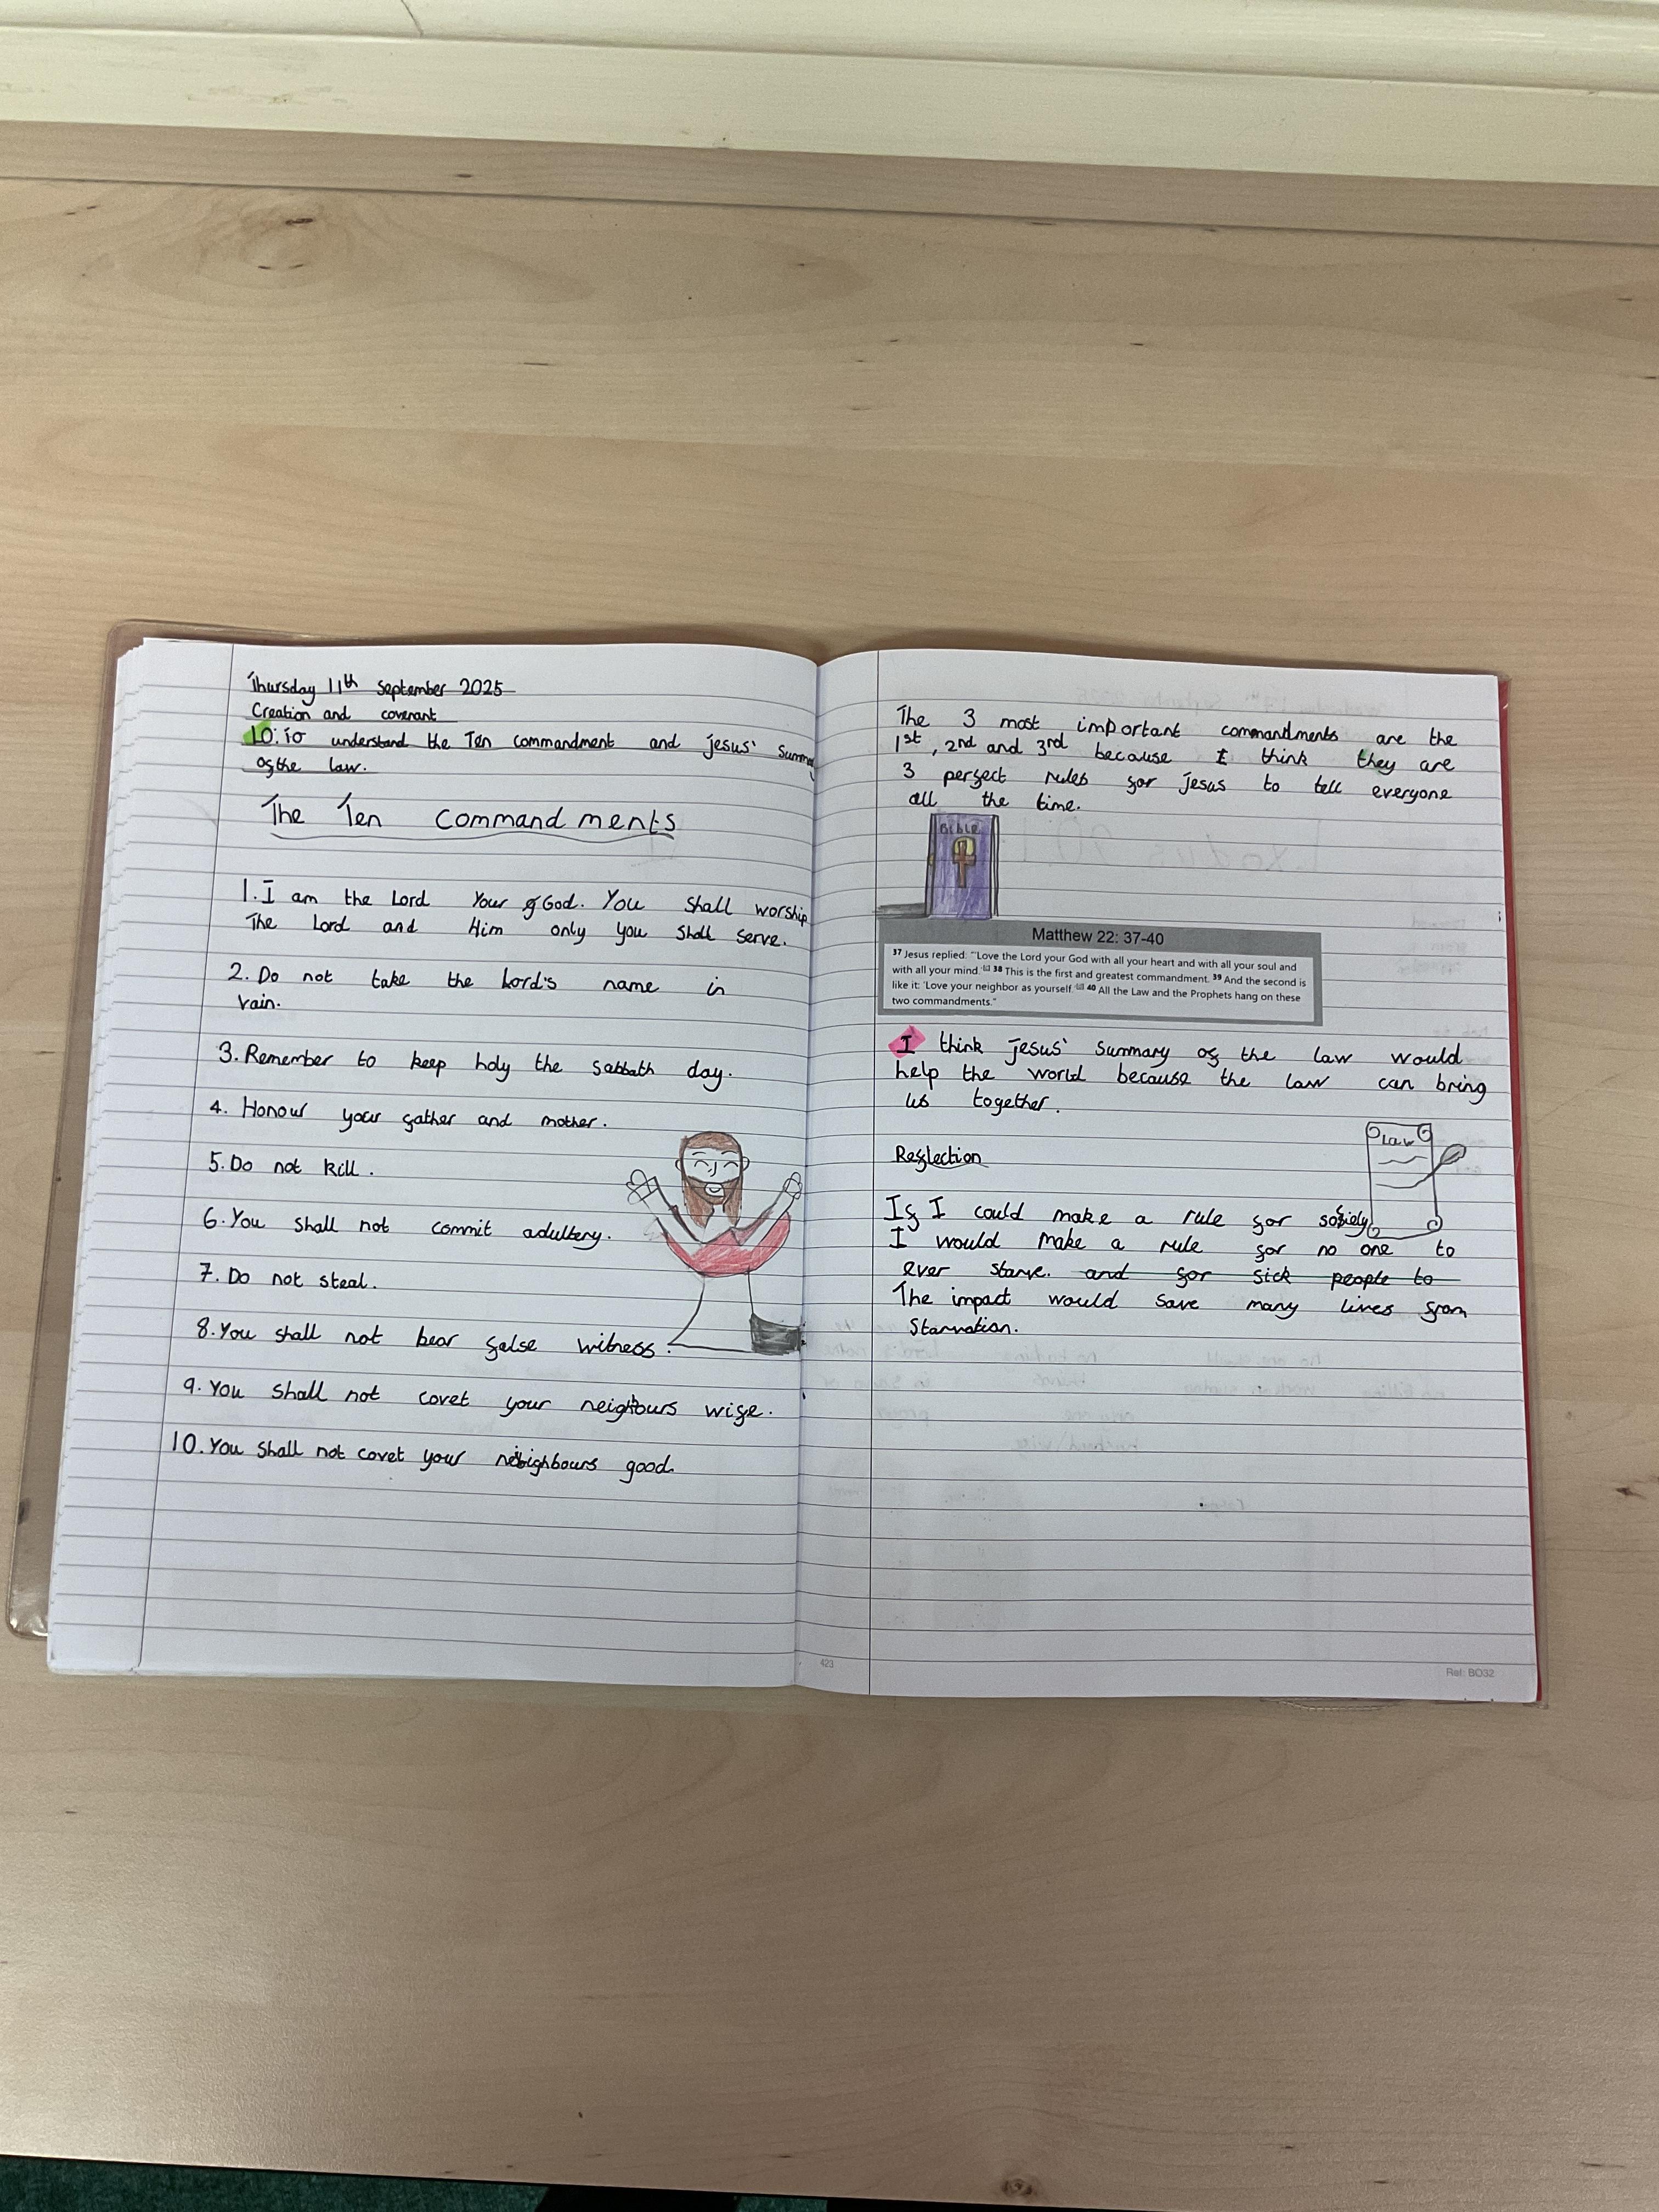 Thursday 11th September 2025
Creation and covenant
LO: To understand the Ten commandment and Jesus' Summary
of the law.
The Ten Commandments
1. I am the Lord Your God. You shall worship
The Lord and Him only you shall serve.
2. Do not take the Lord's name in
vain.
3. Remember to keep holy the sabbath day.
4. Honour your father and mother.
5. Do not kill.
6. You shall not commit adultery.
7. Do not steal.
8. You shall not bear false witness.
9. You shall not covet your neighbours wife.
10. You shall not covet your neighbours good.
423
The 3 most important commandments are the
1st, 2nd and 3rd because I think they are
3 perfect rules for Jesus to tell everyone
all the time.
Bible
Matthew 22: 37-40
37 Jesus replied: "'Love the Lord your God with all your heart and with all your soul and
with all your mind.' 38 This is the first and greatest commandment. 39 And the second is
like it: 'Love your neighbor as yourself.' 40 All the Law and the Prophets hang on these
two commandments."
I think Jesus' summary of the law would
help the world because the law can bring
us together.
Law
Reflection
If I could make a rule for
I would make a rule for no one to
ever starve. and for sick people to
The impact would save many lives from
Starvation.
Ref: BO32